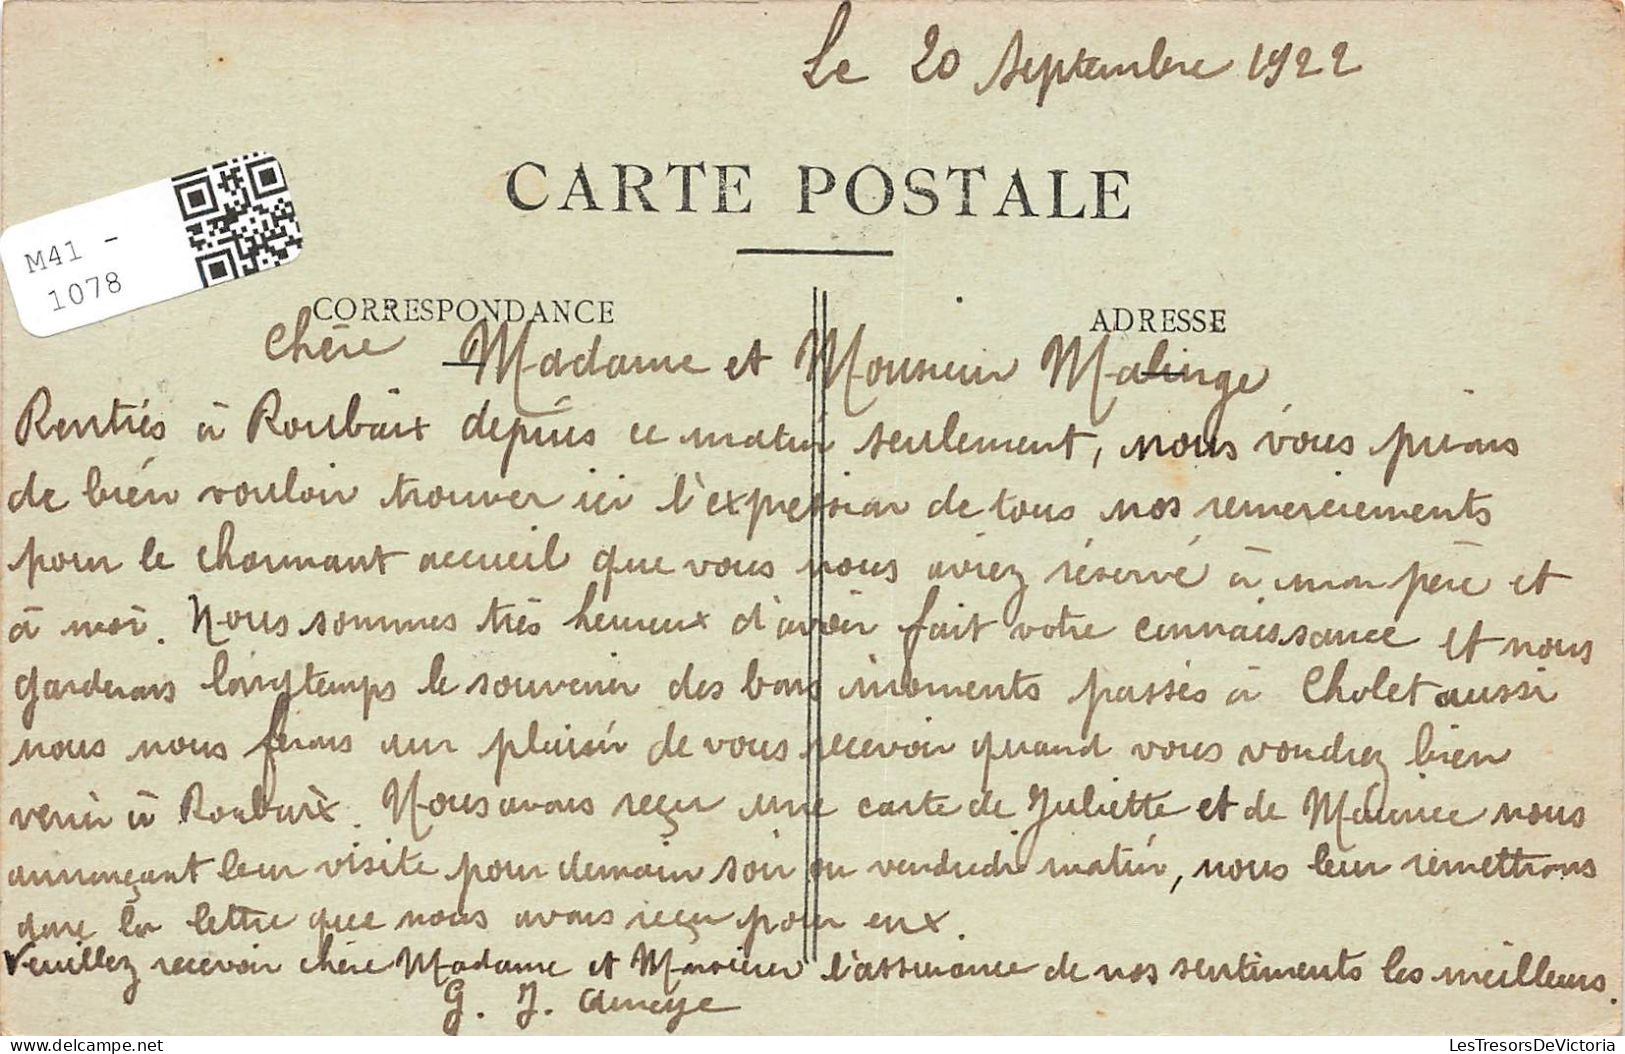 Le 20 Septembre 1922
CARTE POSTALE
M41 -
1078
CORRESPONDANCE
ADRESSE
Chère Madame et Monsieur Malinge
Rentrés à Roubaix depuis ce matin seulement, nous vous prions
de bien vouloir trouver ici l'expression de tous nos remerciements
pour le charmant accueil que vous nous aviez réservé à mon père et
à moi. Nous sommes très heureux d'avoir fait votre connaissance et nous
garderons longtemps le souvenir des bons moments passés à Cholet aussi
nous nous ferons un plaisir de vous recevoir quand vous voudrez bien
venir à Roubaix. Nous avons reçu une carte de Juliette et de Maurice nous
annonçant leur visite pour demain soir ou vendredi matin, nous leur remettrons
donc la lettre que nous avons reçu pour eux.
Veuillez recevoir chère Madame et Monsieur l'assurance de nos sentiments les meilleurs.
G. J.
delcampe.net
LesTresorsDeVictoria